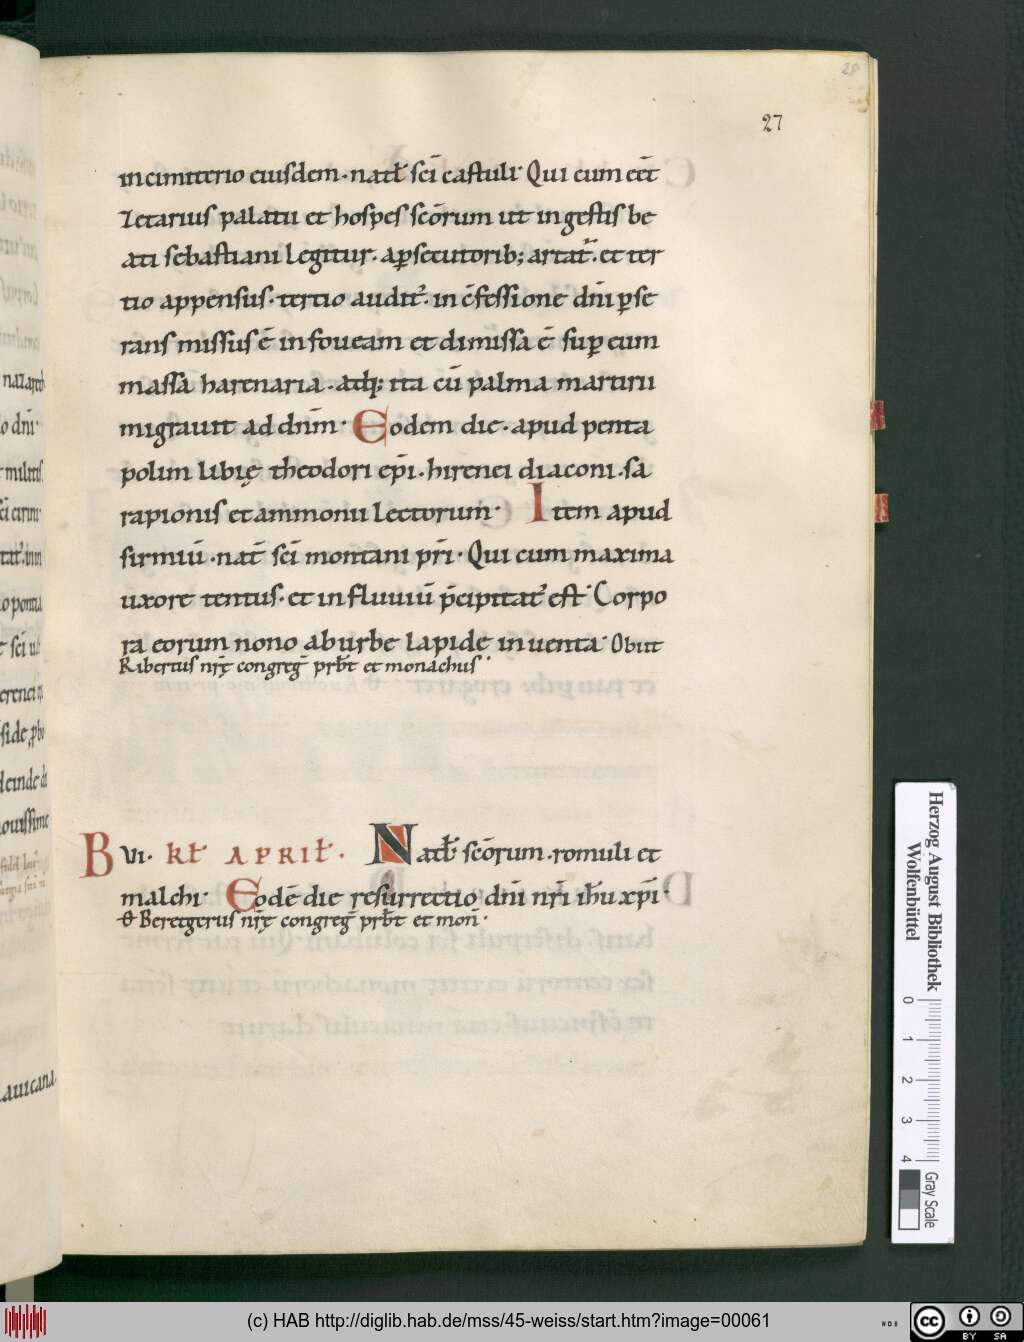 28
27
in cimiterio eiusdem · natł sc̄i castuli · Qui cum eēt
zetarius palatii et hospes sc̄orum ut in gestis be
ati sebastiani legitur · a ꝑsecutorib; artat᷒ · et ter
tio appensus · tertio audit᷒ · in c̄fessione dn̄i ꝑse
rans missus ē in foueam et dimissa ē suꝑ eum
massa harenaria · atq; ita cū palma martirii
migrauit ad dn̄m · Eodem die · apud penta
polim libię theodori ep̄i · hirenei diaconi · sa
rapionis et ammonii lectorum · Item apud
sirmiū · nat̄ sc̄i montani pr̄i · Qui cum maxima
uxore tentus · et in fluuiū p̄cipitat᷒ est · Corpo
ra eorum nono ab urbe lapide inuenta · Obiit
Ribertus nr̄ę congreḡ prb̄t et monachus ·
B VI · KŁ APRIŁ · Natł sc̄orum · romuli et
malchi · Eodē die resurrectio dn̄i nr̄i ih̄u xp̄i ·
Beretgerus nr̄ę congreḡ prb̄t et mon̄ ·
nazareth
o dn̄i ·
t militis
o pontia
auicana
Herzog August Bibliothek
Wolfenbüttel
0 1 2 3 4
Gray Scale
(c) HAB http://diglib.hab.de/mss/45-weiss/start.htm?image=00061
WDB
cc BY SA